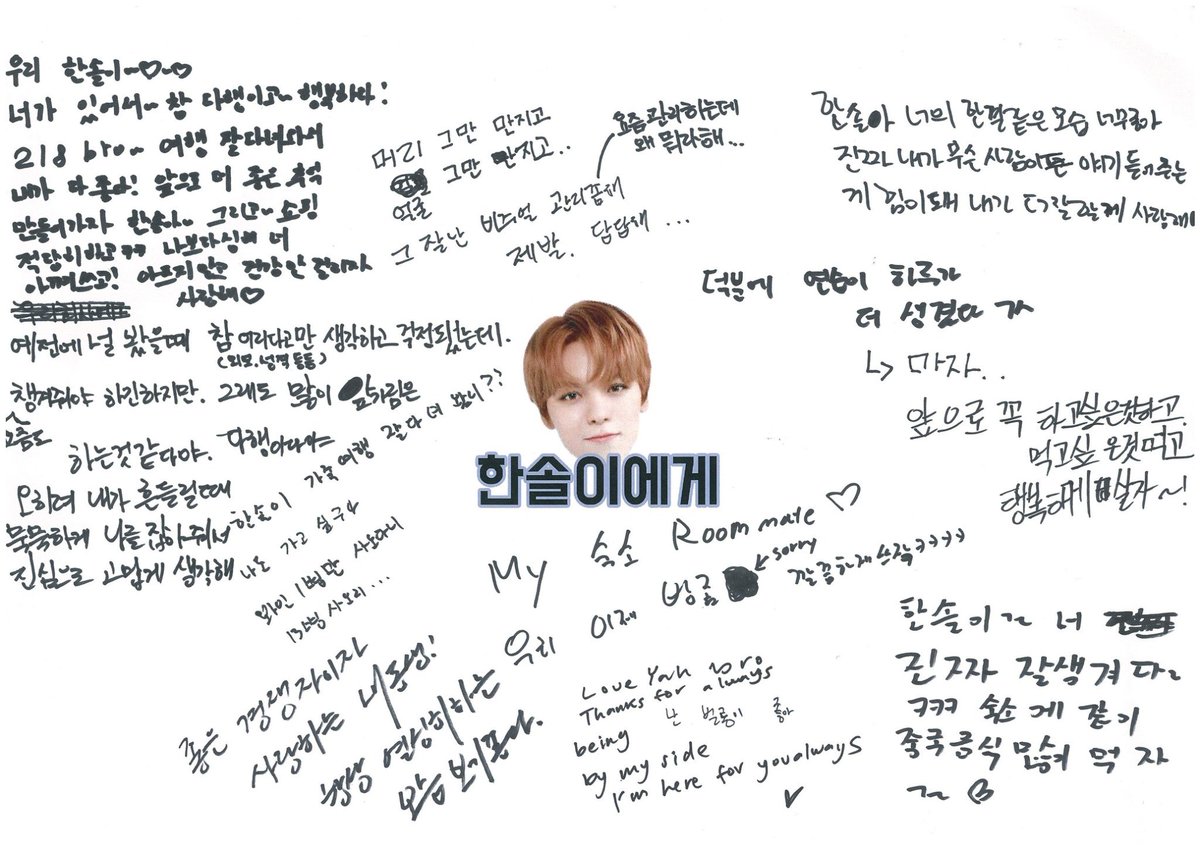 우리 한솔이~♡~♡
너가 있어서~ 참 다행이고~ 행복하다!
218 bro~ 여행 잘다녀와서
내가 다 좋아! 앞으로 더 좋은 추억
만들어가자 한솔아~ 그리고~ 쇼핑
적당히하고ㅋㅋ 나보다심해 너
아껴쓰고! 아프지말고 건강 안
사랑해♡
예전에 널 봤을때 참 여리다고만 생각하고 걱정됐는데.
(외모, 성격 등등)
챙겨줘야 하긴하지만. 그래도 많이
요즘도
하는것같다야. 다행이다야
오히려 내가 흔들릴때
묵묵하게 나를 잡아줘서
진심으로 고맙게 생각해
머리 그만 만지고
얼굴 그만 만지고..
그 잘난 비주얼 관리좀해
제발. 답답해 ...
요즘관리하는데
왜 뭐라해...
한솔아 너의 한결같은 모습 너무좋아
진짜 내가 무슨 사람이든 얘기 들어주는
게 힘이돼 내가 더잘할게 사랑해
덕분에 연습이 하루가
더 성겼다 ㅋㅋ
↳ 마자..
앞으로 꼭 하고싶은것하고.
먹고싶은것먹고
행복하게 살자~!
한솔이에게
한솔이 가족여행 잘 다녀 왔니??
나도 가고 싶구나
와인 1병만 사오라니
13병 사오리...
좋은 경쟁자이자
사랑하는 내동생!
항상 열심히하는
모습 보기좋아.
My 숙소 Roommate ♡
우리 이제 방좀
sorry
깔끔하게 쓰작ㅋㅋㅋㅋ
Love Yah bro
Thanks for always
난 벌룡이 좋아
being
by my side
I'm here for you always
한솔이~ 너
진짜 잘생겨다~
ㅋㅋㅋ 숙소 에 같이
중국음식 많이 먹자
~